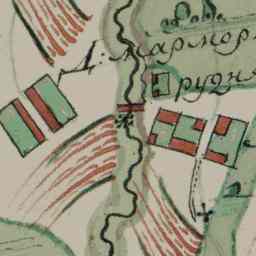 Д. мармор
рудня